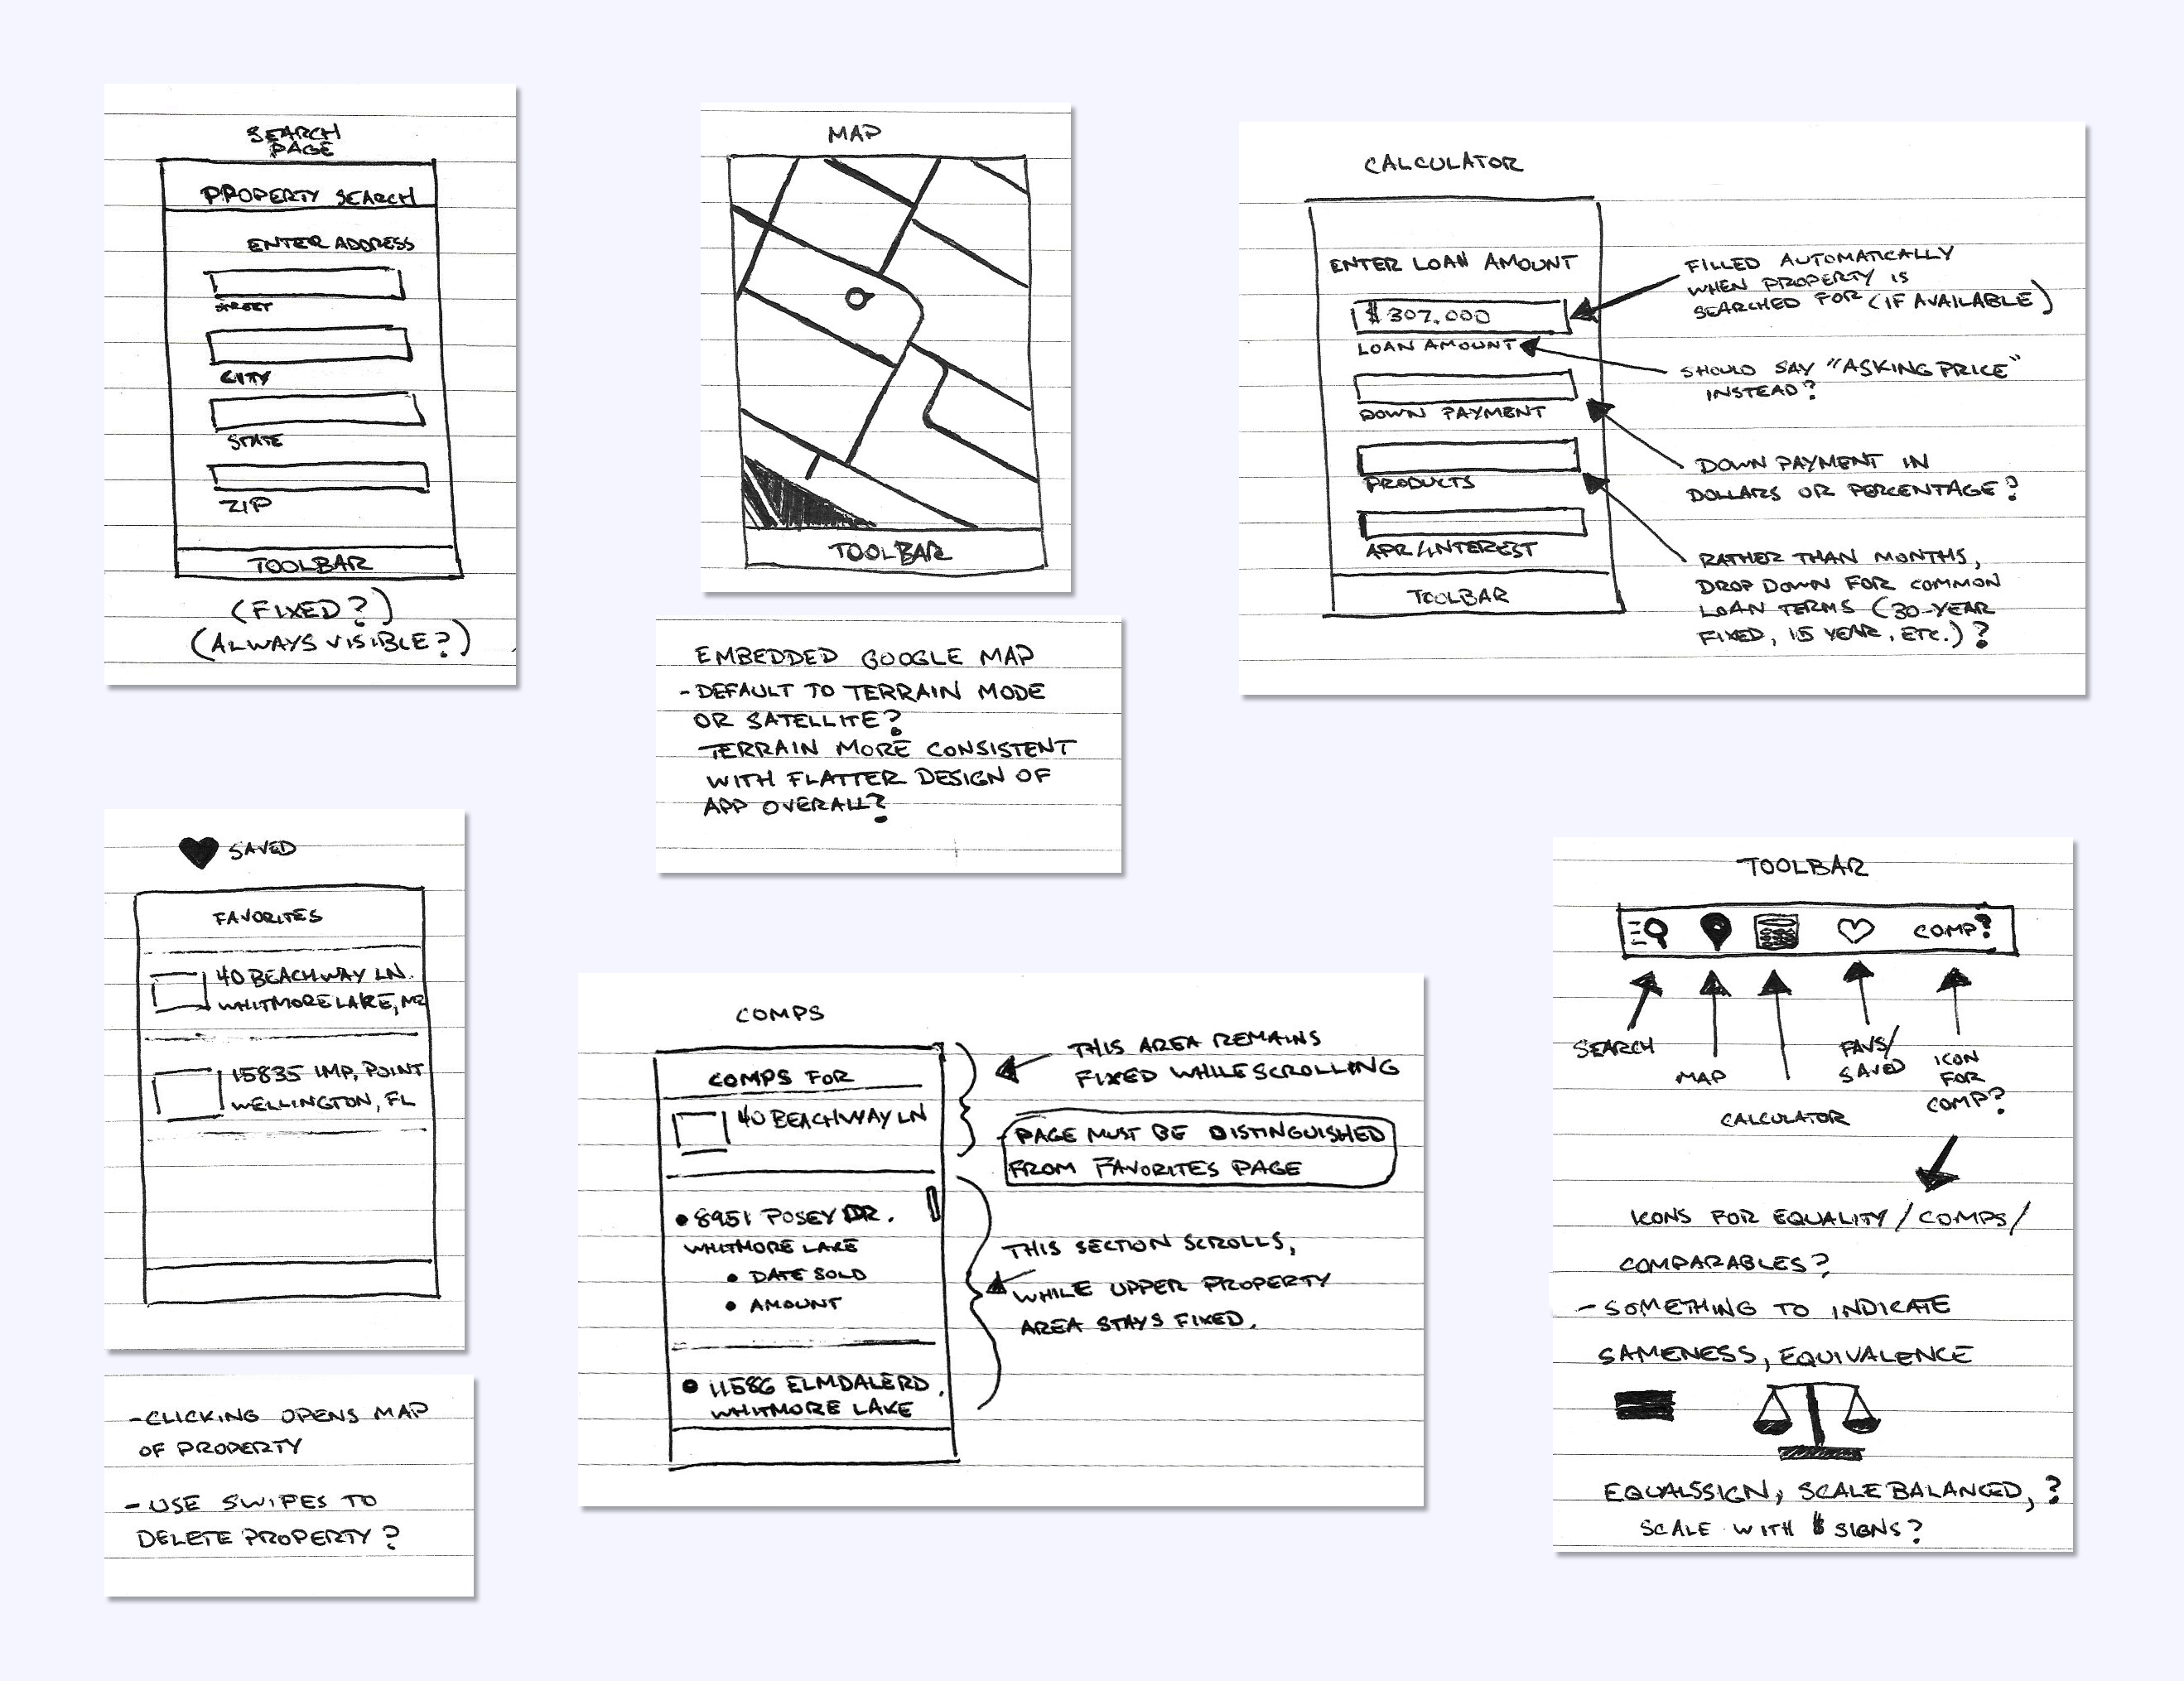 SEARCH
PAGE
PROPERTY SEARCH
ENTER ADDRESS
STREET
CITY
STATE
ZIP
TOOLBAR
(FIXED?)
(ALWAYS VISIBLE?)
MAP
TOOLBAR
EMBEDDED GOOGLE MAP
- DEFAULT TO TERRAIN MODE
OR SATELLITE?
TERRAIN MORE CONSISTENT
WITH FLATTER DESIGN OF
APP OVERALL?
CALCULATOR
ENTER LOAN AMOUNT
$307,000
LOAN AMOUNT
DOWN PAYMENT
PRODUCTS
APR/INTEREST
TOOLBAR
FILLED AUTOMATICALLY
WHEN PROPERTY IS
SEARCHED FOR (IF AVAILABLE)
SHOULD SAY "ASKING PRICE"
INSTEAD?
DOWN PAYMENT IN
DOLLARS OR PERCENTAGE?
RATHER THAN MONTHS,
DROP DOWN FOR COMMON
LOAN TERMS (30-YEAR
FIXED, 15 YEAR, ETC.)?
SAVED
FAVORITES
40 BEACHWAY LN.
WHITMORE LAKE, MI
15835 IMP. POINT
WELLINGTON, FL
- CLICKING OPENS MAP
OF PROPERTY
- USE SWIPES TO
DELETE PROPERTY?
COMPS
COMPS FOR
40 BEACHWAY LN
• 8951 POSEY DR.
WHITMORE LAKE
• DATE SOLD
• AMOUNT
• 11586 ELMDALE RD.
WHITMORE LAKE
THIS AREA REMAINS
FIXED WHILE SCROLLING
- PAGE MUST BE DISTINGUISHED
FROM FAVORITES PAGE
THIS SECTION SCROLLS,
WHILE UPPER PROPERTY
AREA STAYS FIXED.
TOOLBAR
COMP?
SEARCH
MAP
CALCULATOR
FAVS/
SAVED
ICON
FOR
COMP?
ICONS FOR EQUALITY/COMPS/
COMPARABLES?
- SOMETHING TO INDICATE
SAMENESS, EQUIVALENCE
EQUALSSIGN, SCALE BALANCED, ?
SCALE WITH $ SIGNS?